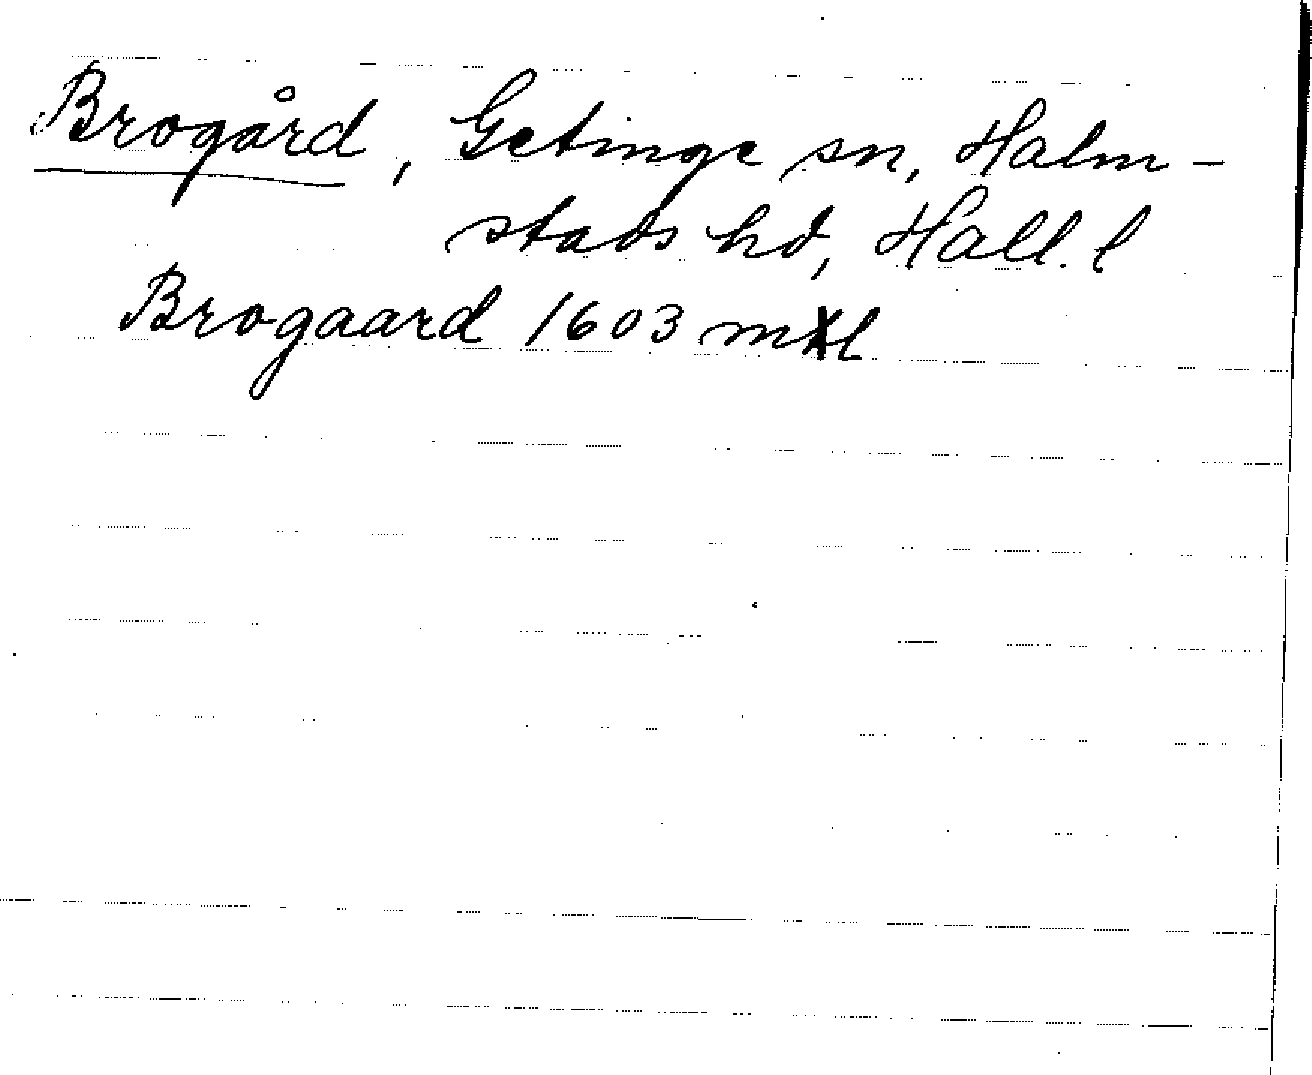 Brogård, Getinge sn, Halm-
stads hd, Hall. l
Brogaard 1603